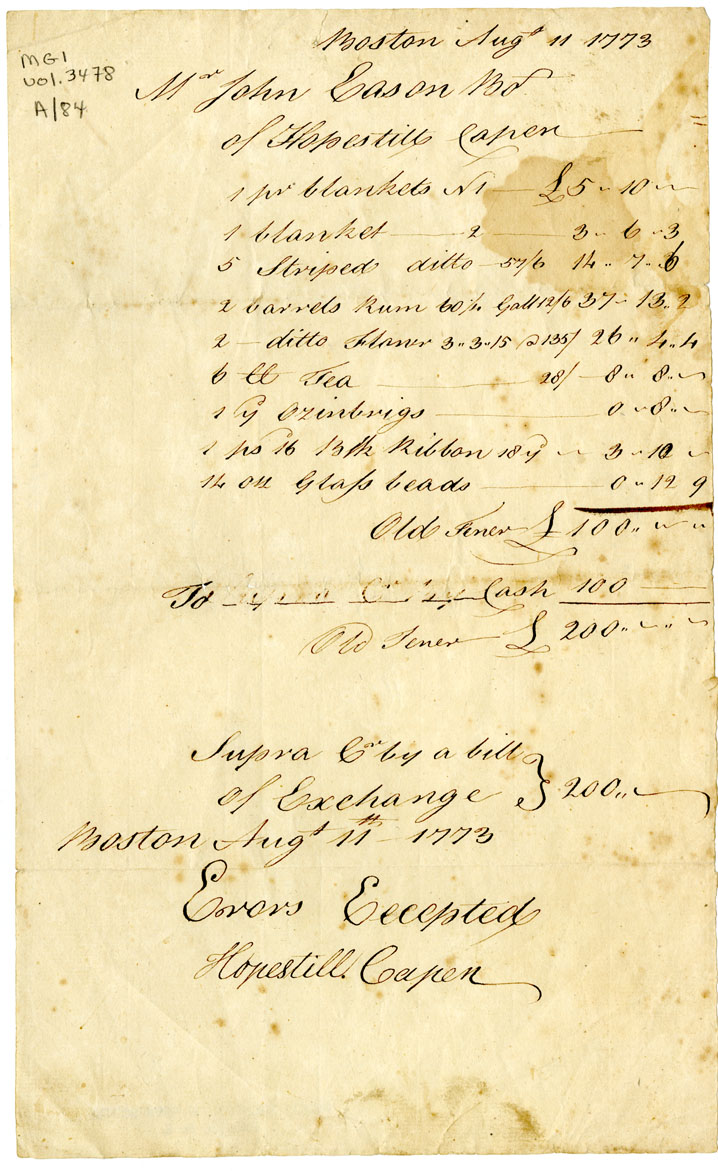 Boston Augt 11 1773
MG1
vol. 3478
A/84
Mr John Eason Bot
of Hopestill Capen
1 pr blankets N1 — £5 „ 10 „
1 blanket — 2 — 3 „ 6 „ 3
5 Striped ditto — 57/6 14 „ 7 „ 6
2 barrels Rum 60 ½ Gall 12/6 37 „ 13 „ 2
2 — ditto Flower 3 „ 3 „ 15 @ 135/ 26 „ 4 „ 4
6 ℔ Tea — 28/ — 8 „ 8 „
1 y Ozinbrigs — 0 „ 8 „
1 ps 16 Ribbon 18 y „ 3 „ 10 „
14 oz Glass beads — 0 „ 12 9
Old Tener £ 100 „ „ „
To Cash 100 —
Old Tener £ 200 „ „ „
Supra Cr by a bill
of Exchange } 200 „
Boston Augt 11th 1773
Erors Eccepted
Hopestill Capen